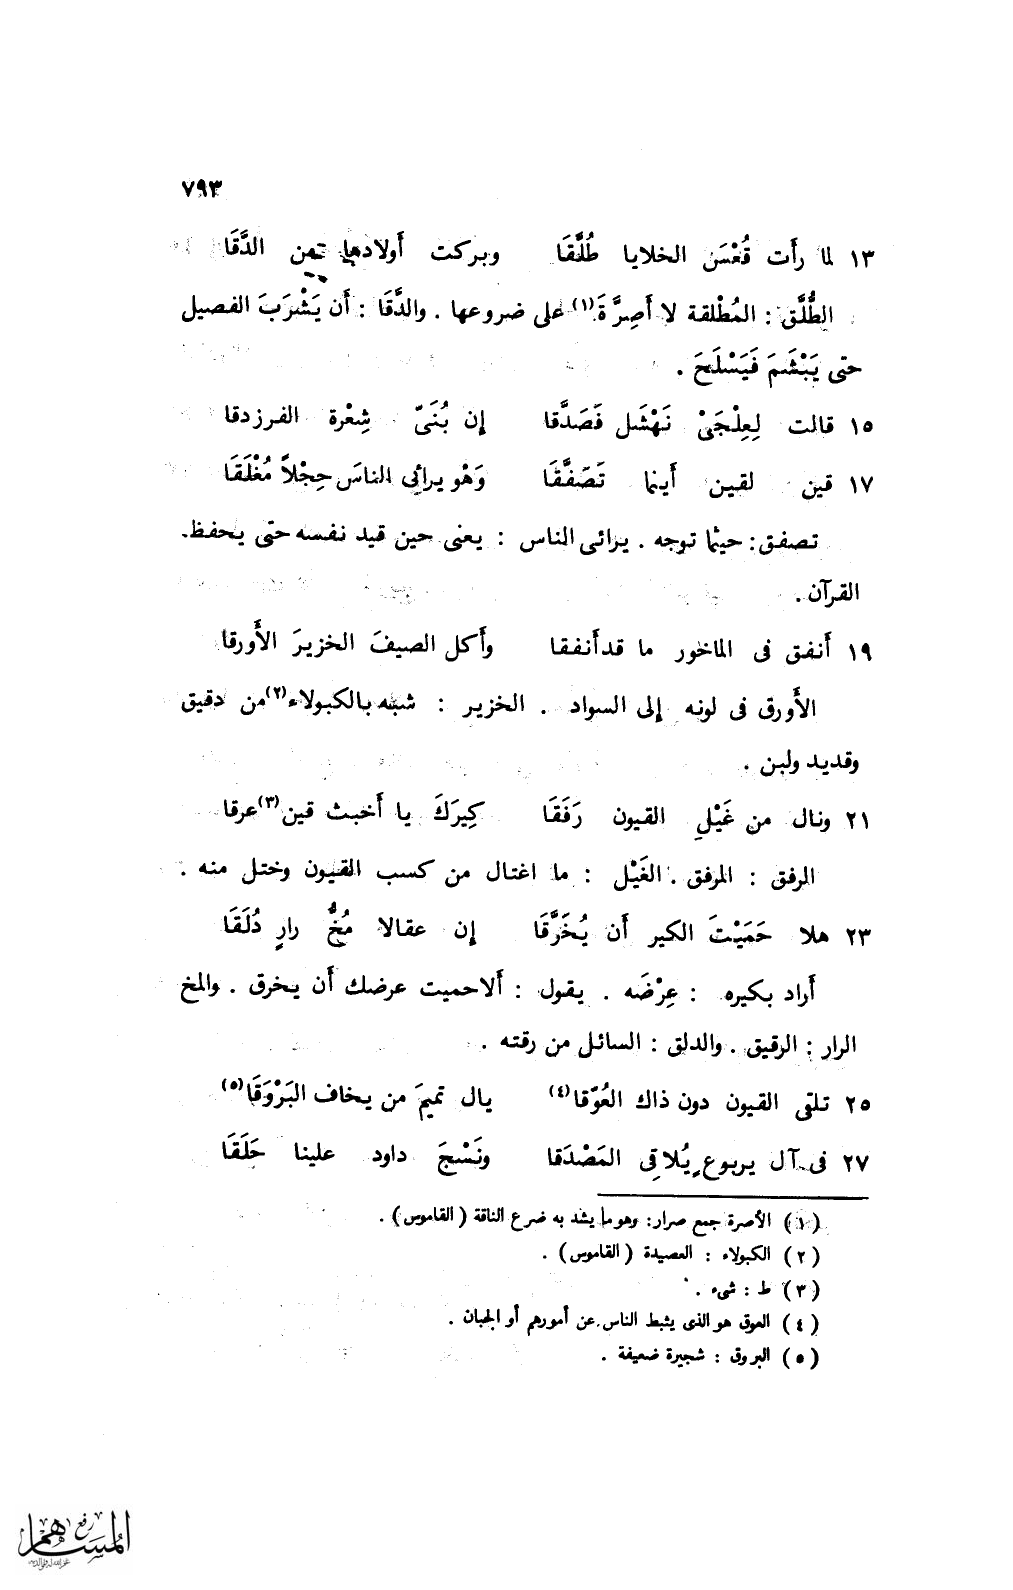 ٧٩٣
١٣ لما رأت قُعْسَ الخلايا طُلَّقَا وبركت أولادها تهن الدَّقَا
الطُّلَّق : المُطْلقة لا أَصِرَّةَ(١) على ضروعها . والدَّقَا : أن يَشْرَبَ الفصيل
حتى يَبْشَمَ فَيَسْلَحَ .
١٥ قالت لِعِلْجَىْ نَهْشَل فَصَدَّقا إن بُنَىّ شِعْرة الفرزدقا
١٧ قين لقين أينما تَصَفَّقَا وَهْو يرائِى الناسَ حِجْلاً مُغْلَقَا
تصفق : حيثما توجه . يرائى الناس : يعنى حين قيد نفسه حتى يحفظ
القرآن .
١٩ أنفق فى الماخور ما قد أنفقا وأكل الصيفَ الخزيرَ الأَورقا
الأَورق فى لونه إلى السواد . الخزير : شبه بالكبولاء(٢) من دقيق
وقديد ولبن .
٢١ ونال من غَيْلِ القيون رَفَقَا كِيرَكَ يا أخبث قين(٣) عرقا
الرفق : المرفق . الغَيْل : ما اغتال من كسب القيون وختل منه .
٢٣ هلا حَمَيْتَ الكير أن يُخَرَّقَا إن عقالا مُخُّ رارٍ دُلَقَا
أراد بكيره : عِرْضَه . يقول : ألا حميت عرضك أن يخرق . والمخ
الرار : الرقيق . والدلق : السائل من رقته .
٢٥ تلقى القيون دون ذاك العُوّقا(٤) يال تميمَ من يخاف البَرْوَقَا(٥)
٢٧ فى آل يربوعٍ يُلاقِى المَصْدَقا ونَسْجَ داود علينا حَلَقَا
(١) الأصرة جمع صرار: وهو ما يشد به ضرع الناقة (القاموس) .
(٢) الكبولاء : العصيدة (القاموس) .
(٣) ط : شىء .
(٤) العوق هو الذى يثبط الناس عن أمورهم أو الجبان .
(٥) البروق : شجيرة ضعيفة .